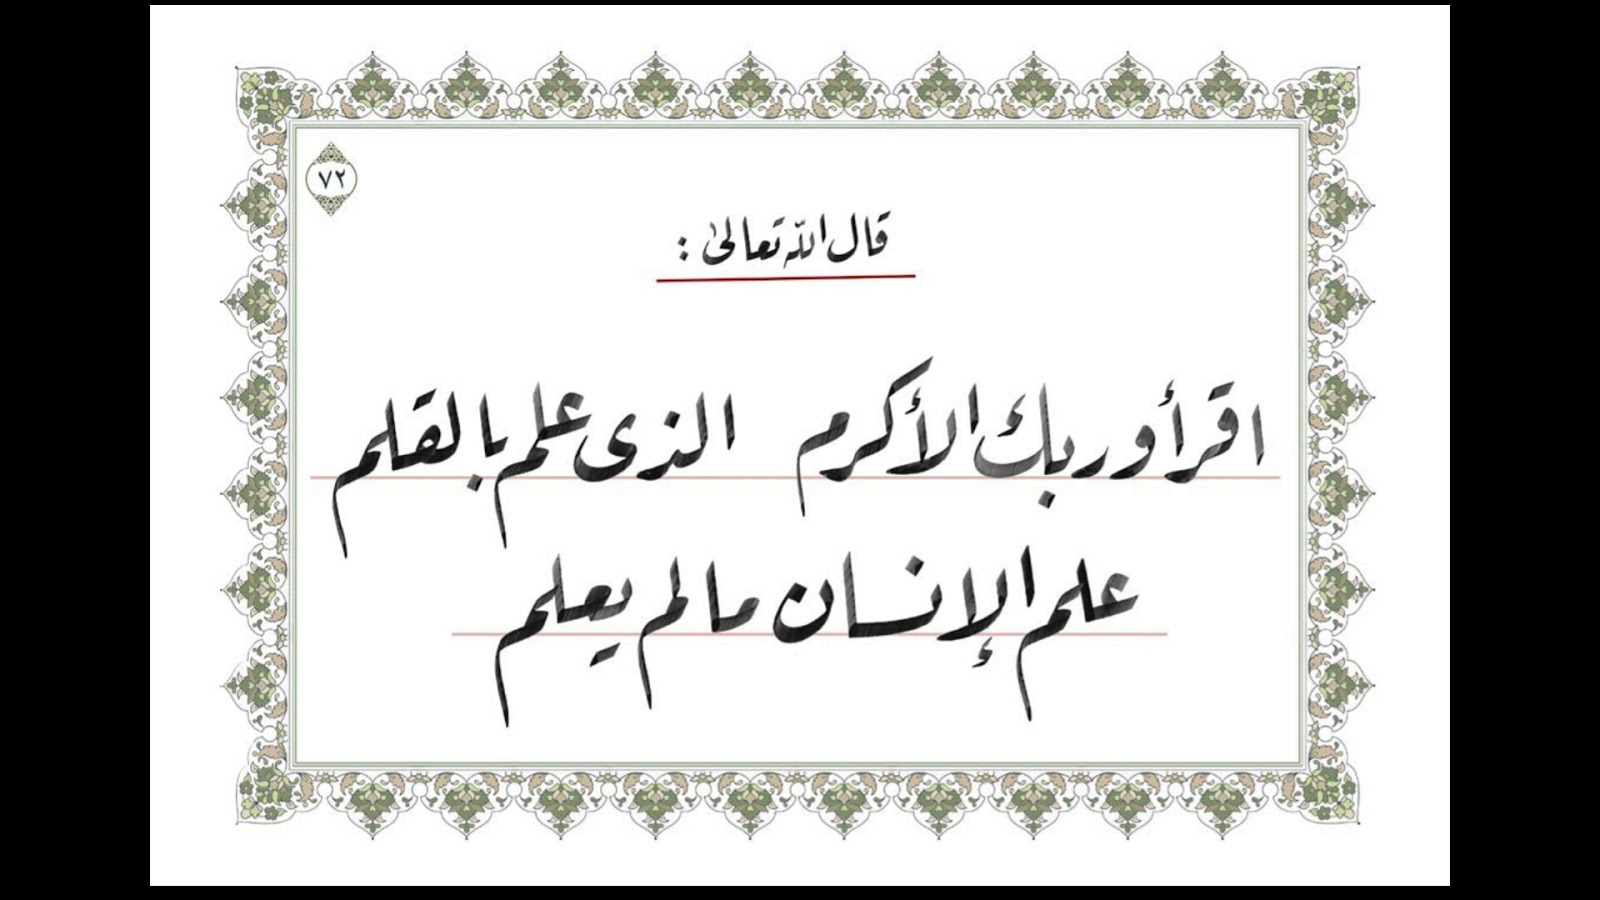 ٧٢
قال الله تعالى :
اقرأ وربك الأكرم الذى علم بالقلم
علم الإنسان مالم يعلم